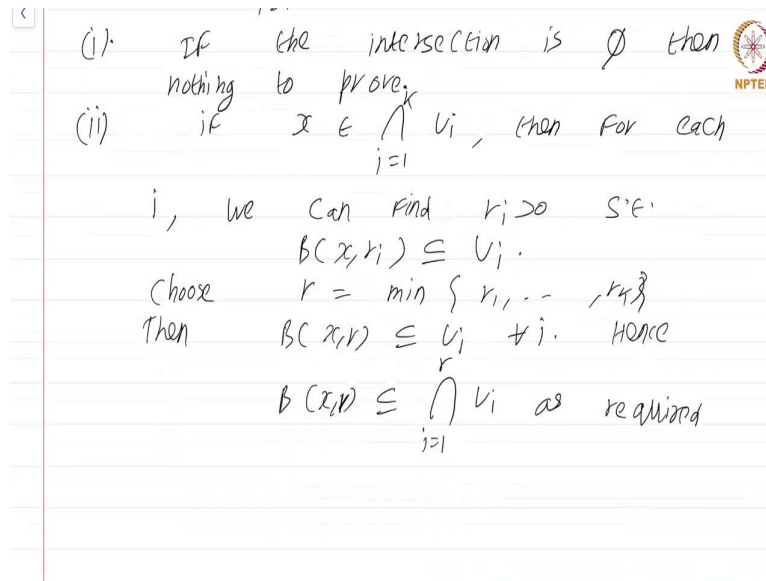 (i). If the intersection is ∅ then
nothing to prove.
NPTEL
(ii) if x ∈ ⋂_{i=1}^{k} U_i, then for each
i, we can find r_i > 0 s.t.
B(x, r_i) ⊆ U_i.
Choose r = min { r_1, .. , r_k }
Then B(x, r) ⊆ U_i ∀ i. Hence
B(x, r) ⊆ ⋂_{i=1}^{r} U_i as required